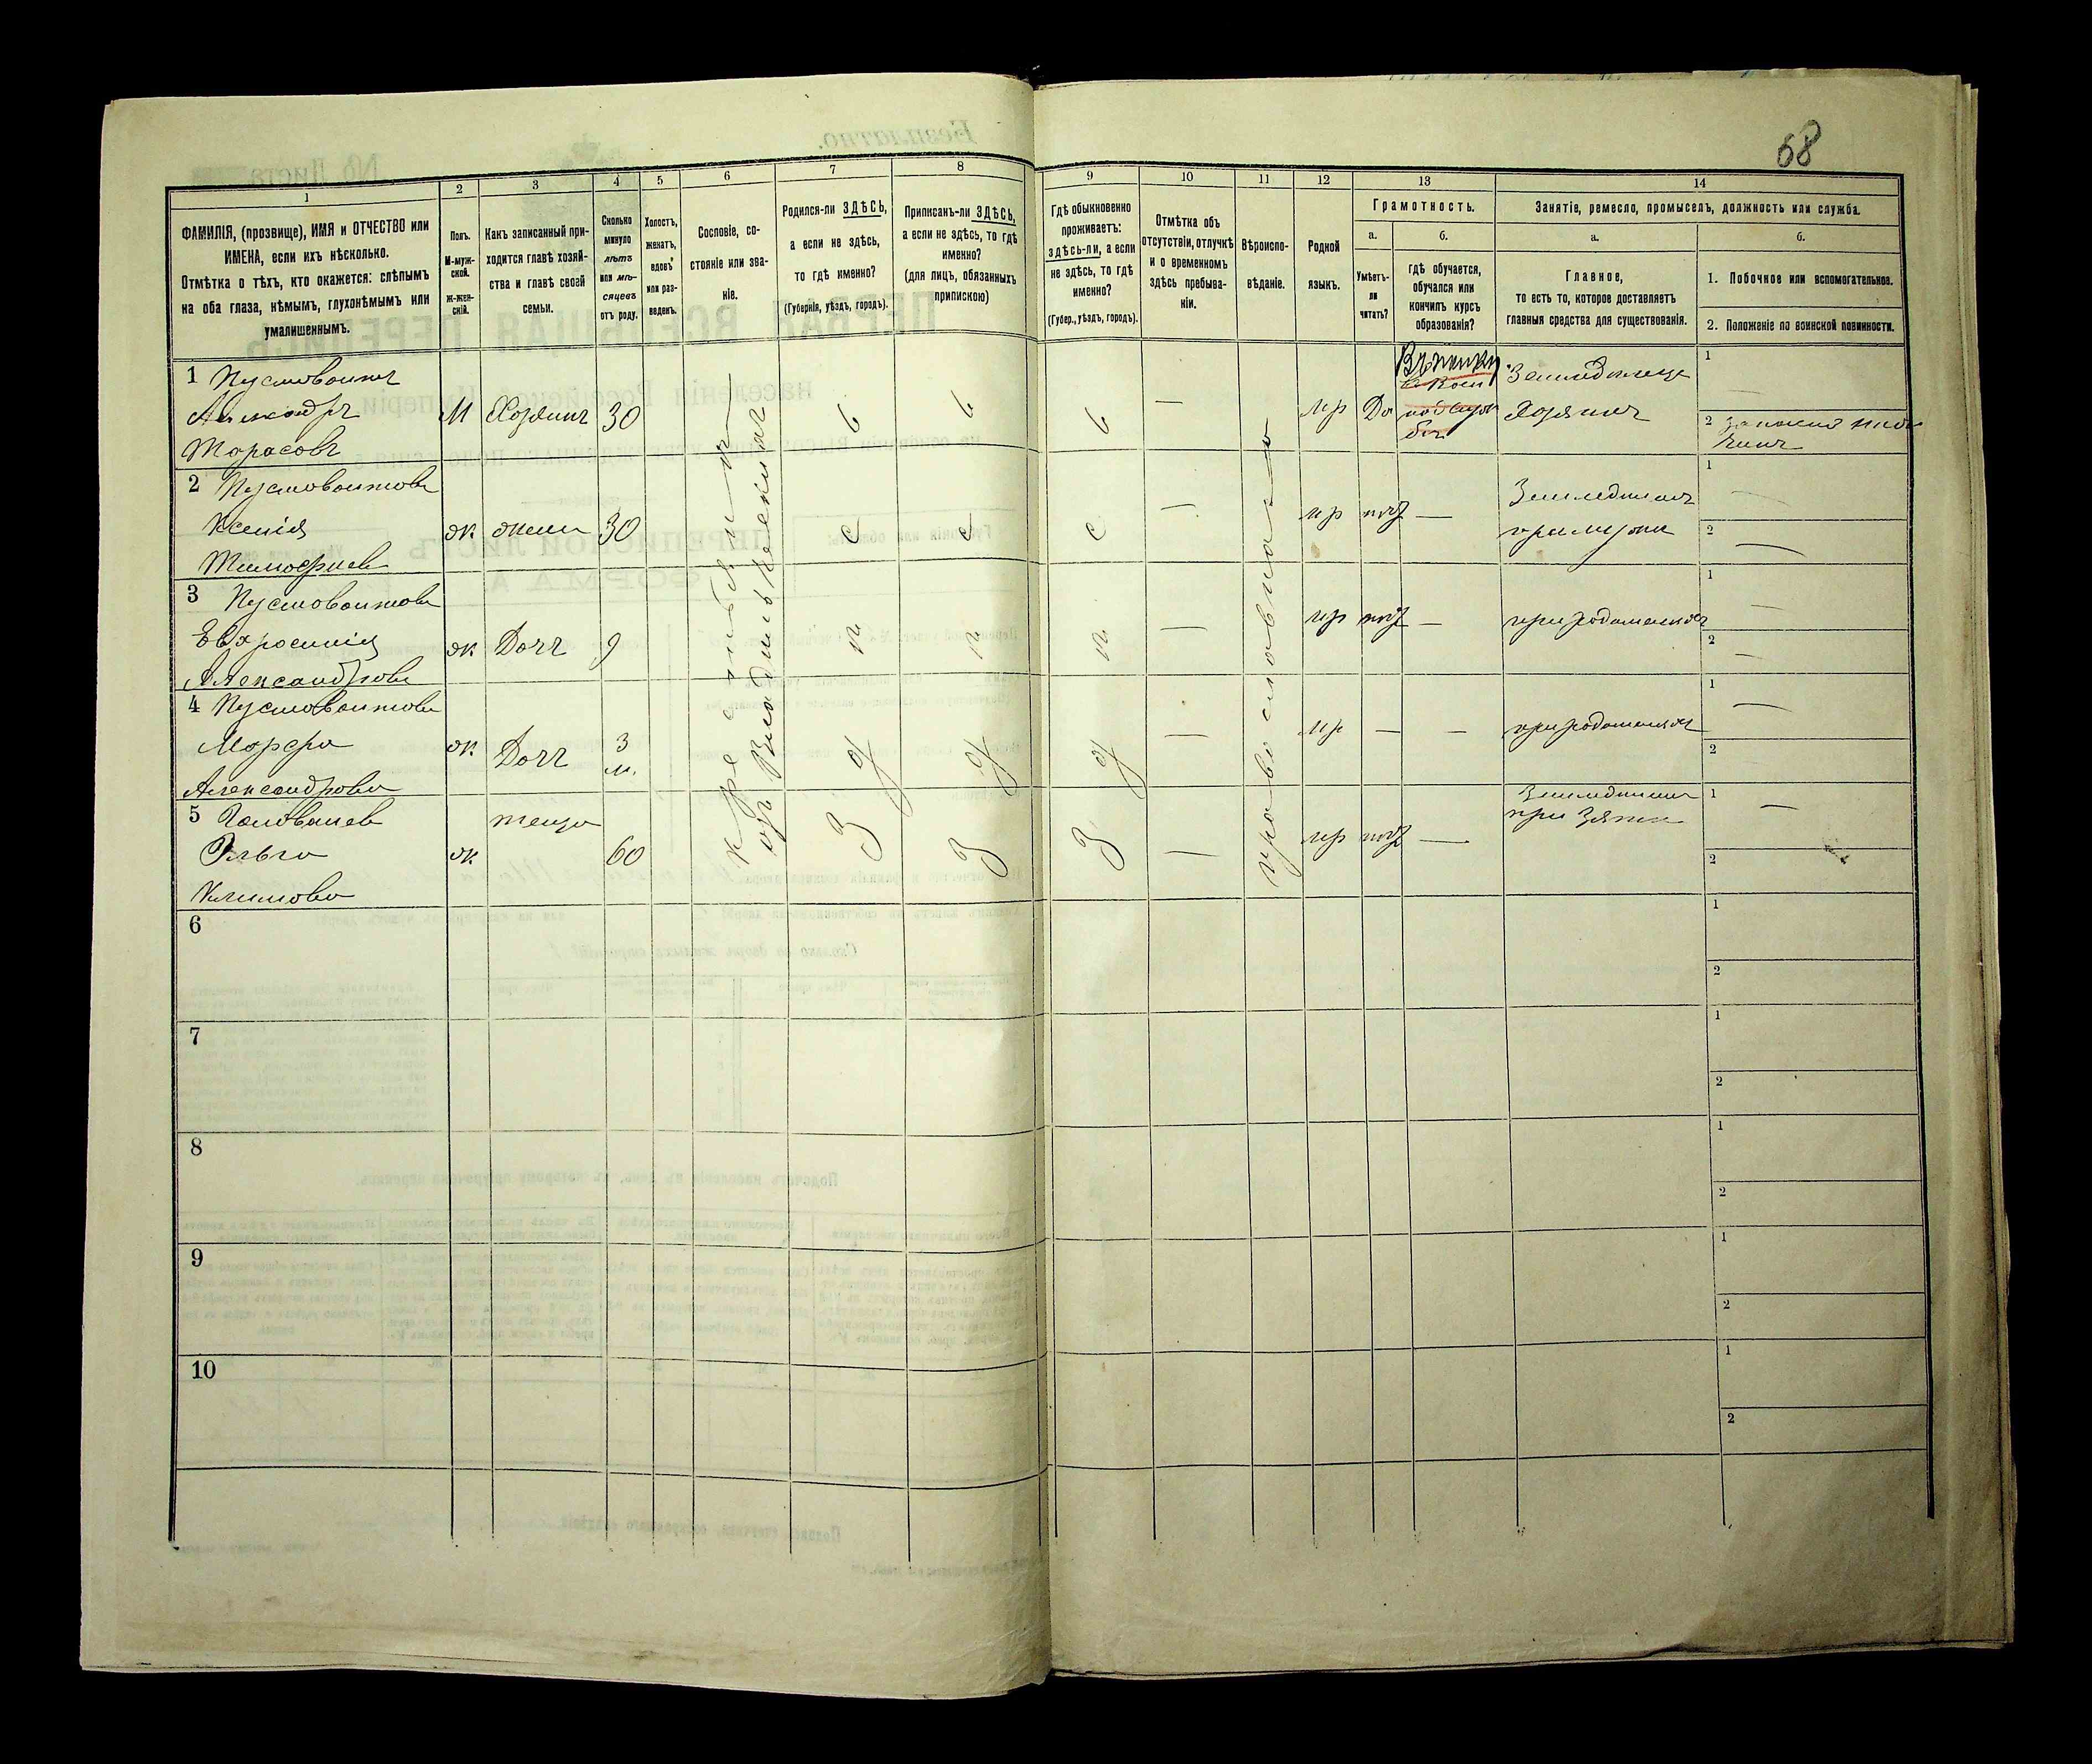 68
1 2 3 4 5 6 7 8 9 10 11 12 13 14
ФАМИЛІЯ, (прозвище), ИМЯ и ОТЧЕСТВО или
ИМЕНА, если ихъ нѣсколько.
Отмѣтка о тѣхъ, кто окажется: слѣпымъ
на оба глаза, нѣмымъ, глухонѣмымъ или
умалишеннымъ.
Полъ.
М-муж-
ской.
ж-жен-
скій.
Какъ записанный при-
ходится главѣ хозяй-
ства и главѣ своей
семьи.
Сколько
минуло
лѣтъ
или мѣ-
сяцевъ
отъ роду.
Холостъ,
женатъ,
вдовъ
или раз-
веденъ.
Сословіе, со-
стояніе или зва-
ніе.
Родился-ли ЗДѢСЬ,
а если не здѣсь,
то гдѣ именно?
(Губернія, уѣздъ, городъ).
Приписанъ-ли ЗДѢСЬ,
а если не здѣсь, то гдѣ
именно?
(для лицъ, обязанныхъ
припискою)
Гдѣ обыкновенно
проживаетъ:
здѣсь-ли, а если
не здѣсь, то гдѣ
именно?
(Губер., уѣздъ, городъ).
Отмѣтка объ
отсутствіи, отлучкѣ
и о временномъ
здѣсь пребыва-
ніи.
Вѣроиспо-
вѣданіе.
Родной
языкъ.
Грамотность.
а.
Умѣетъ-
ли
читать?
б.
гдѣ обучается,
обучался или
кончилъ курсъ
образованія?
Занятіе, ремесло, промыселъ, должность или служба.
а.
Главное,
то есть то, которое доставляетъ
главныя средства для существованія.
б.
1. Побочное или вспомогательное.
2. Положеніе по воинской повинности.
1 Пустовоитъ
Александръ
Торасовъ
М Хозяинъ 30 — мр Да
Земледѣлецъ
Хозяинъ
1 —
2
2 Пустовоитова
Ксенія
Тимофиев
ж жена 30 — мр —
1 —
2 —
3 Пустовоитова
Евхросинія
Александрова
ж Дочъ 9 — мр —
1 —
2 —
4 Пустовоитова
Марфа
Александрова
ж Дочъ 3
м.
— мр — —
1 —
2
5
Ольга
Климова
ж теща 60 — мр —
при зяти
1 —
2
крестьянинъ
изъ
здѣсь
здѣсь
здѣсь
православнаго
6 1
2
7 1
2
8 1
2
9 1
2
10 1
2